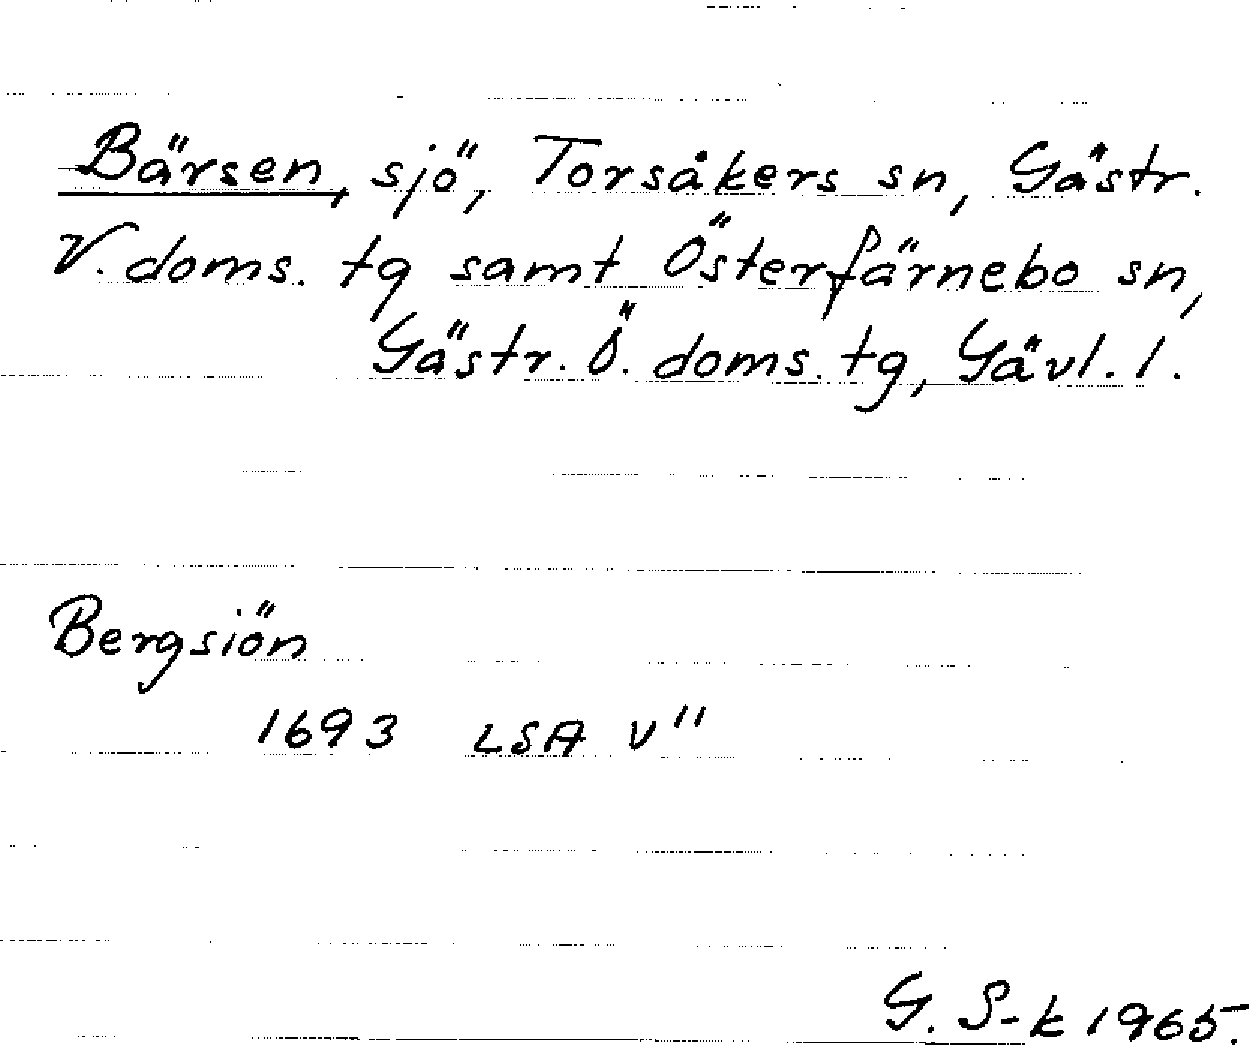 Bärsen, sjö, Torsåkers sn, Gästr.
V. doms. tg samt Österfärnebo sn,
Gästr. Ö. doms. tg, Gävl. l.
Bergsiön
1693 LSA V"
G. S-k 1965.